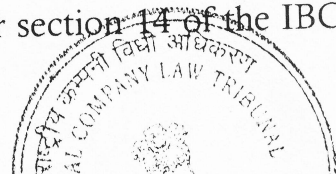 r section 14 of the IBC
राष्ट्रीय कम्पनी विधी अधिकरण
AL COMPANY LAW TRIBUNAL